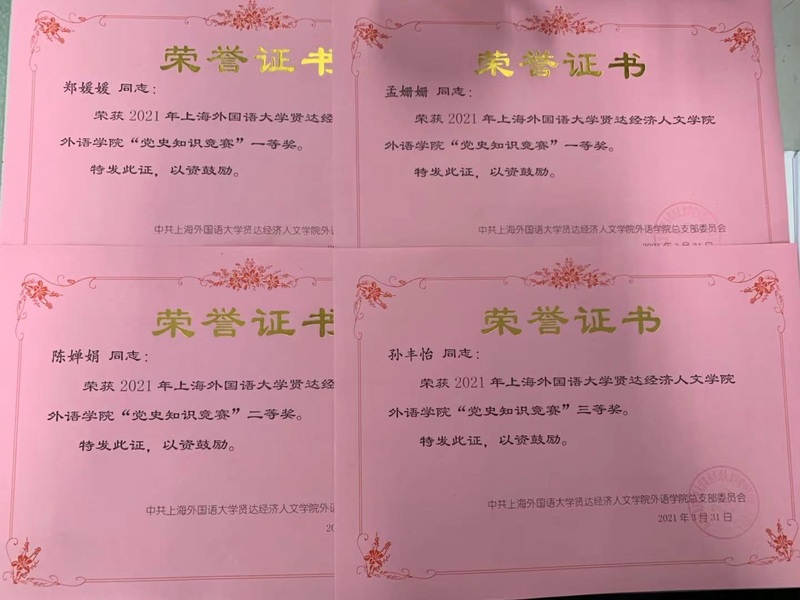 荣誉证书
郑媛媛 同志：
荣获 2021 年上海外国语大学贤达经
外语学院“党史知识竞赛”一等奖。
特发此证，以资鼓励。
中共上海外国语大学贤达经济人文学院外语
荣誉证书
孟姗姗 同志：
荣获 2021 年上海外国语大学贤达经济人文学院
外语学院“党史知识竞赛”一等奖。
特发此证，以资鼓励。
中共上海外国语大学贤达经济人文学院外语学院总支部委员会
2021 年 3 月 31 日
荣誉证书
陈婵娟 同志：
荣获 2021 年上海外国语大学贤达经
外语学院“党史知识竞赛”二等奖。
特发此证，以资鼓励。
中共上海外国语大学贤达经济人文学院外语
20
荣誉证书
孙丰怡 同志：
荣获 2021 年上海外国语大学贤达经济人文学院
外语学院“党史知识竞赛”三等奖。
特发此证，以资鼓励。
中共上海外国语大学贤达经济人文学院外语学院总支部委员会
2021 年 3 月 31 日